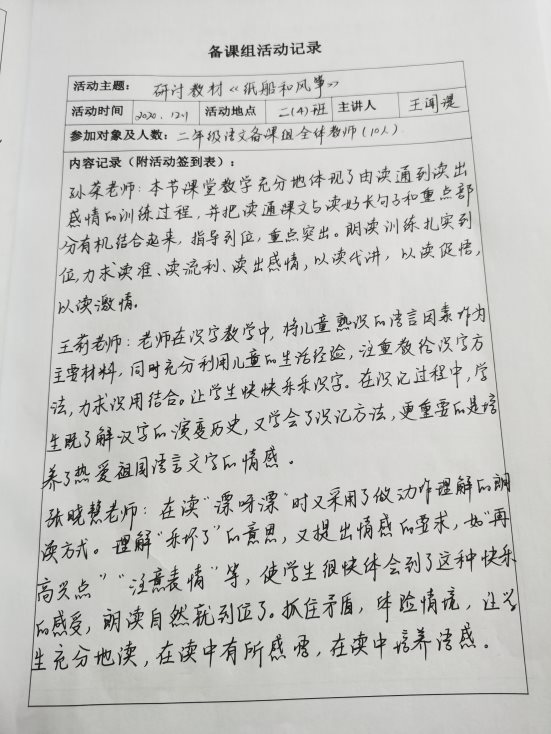 备课组活动记录
活动主题： 研讨教材《纸船和风筝》
活动时间 2020.12.1 活动地点 二(4)班 主讲人 王闻湜
参加对象及人数：二年级语文备课组全体教师（10人）
内容记录（附活动签到表）：
孙荣老师：本节课堂教学充分地体现了由读通到读出
感情的训练过程，并把读通课文与读好长句子和重点部
分有机结合起来，指导到位，重点突出。朗读训练扎实到
位，力求读准、读流利、读出感情，以读代讲，以读促悟，
以读激情。
王莉老师：老师在识字教学中，将儿童熟识的语言因素作为
主要材料，同时充分利用儿童的生活经验，注重教给识字方
法，力求识用结合。让学生快快乐乐识字。在识记过程中，学
生既了解汉字的演变历史，又学会了识记方法，更重要的是培
养了热爱祖国语言文字的情感。
张晓慧老师：在读“漂呀漂”时又采用了做动作理解的朗
读方式。理解“乐坏了”的意思，又提出情感的要求，如“再
高兴点”“注意表情”等，使学生很快体会到了这种快乐
的感受，朗读自然就到位了。抓住矛盾，体验情境，让学
生充分地读，在读中有所感悟，在读中培养语感。